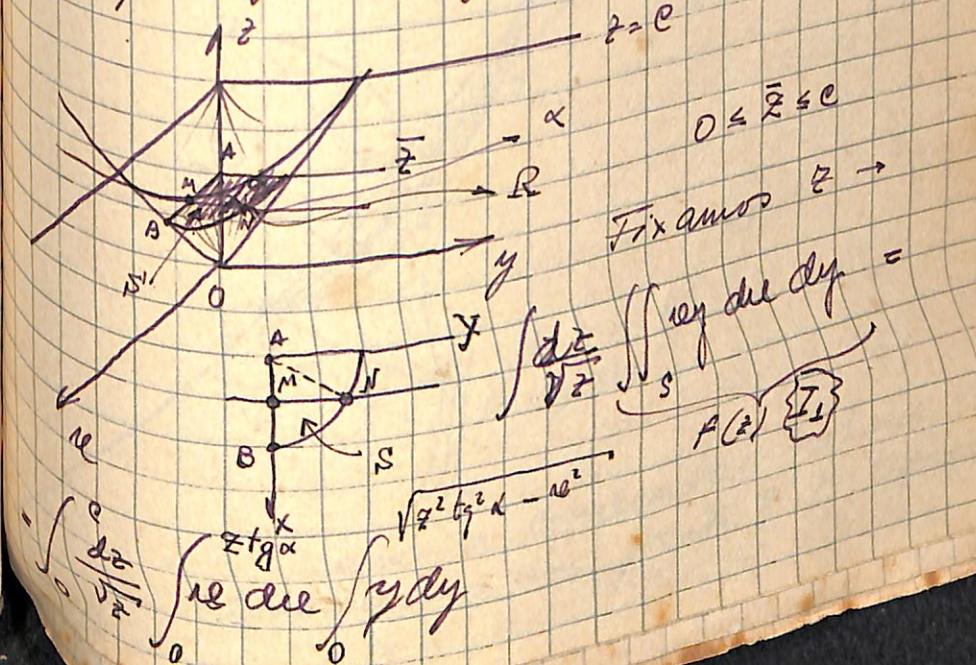 z
z = C
α
0 ≤ z̄ ≤ C
z̄
A
M
N
B
R
Fixamos z →
S
y
O
x
A
y
M
N
B
S
x
∫ dz/√z ∬_S xy dx dy =
f(z) I₁
∫₀^C dz/√z ∫₀^{z tg α} x dx ∫₀^{√(z² tg² α − x²)} y dy